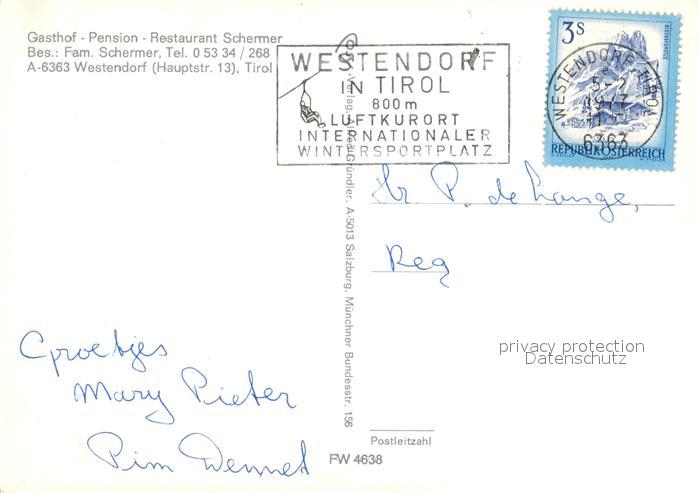 Gasthof - Pension - Restaurant Schermer
Bes.: Fam. Schermer, Tel. 0 53 34 / 268
A-6363 Westendorf (Hauptstr. 13), Tirol
WESTENDORF
IN TIROL
800 m
LUFTKURORT
INTERNATIONALER
WINTERSPORTPLATZ
3 S
WESTENDORF TIROL
1977
6363
REPUBLIK ÖSTERREICH
Verlag Alfred Gründler, A-5013 Salzburg, Münchner Bundesstr. 156
Hr. P. de Lange,
Reg
privacy protection
Datenschutz
Groetjes
Mary Pieter
Pim Dennet
Postleitzahl
FW 4638